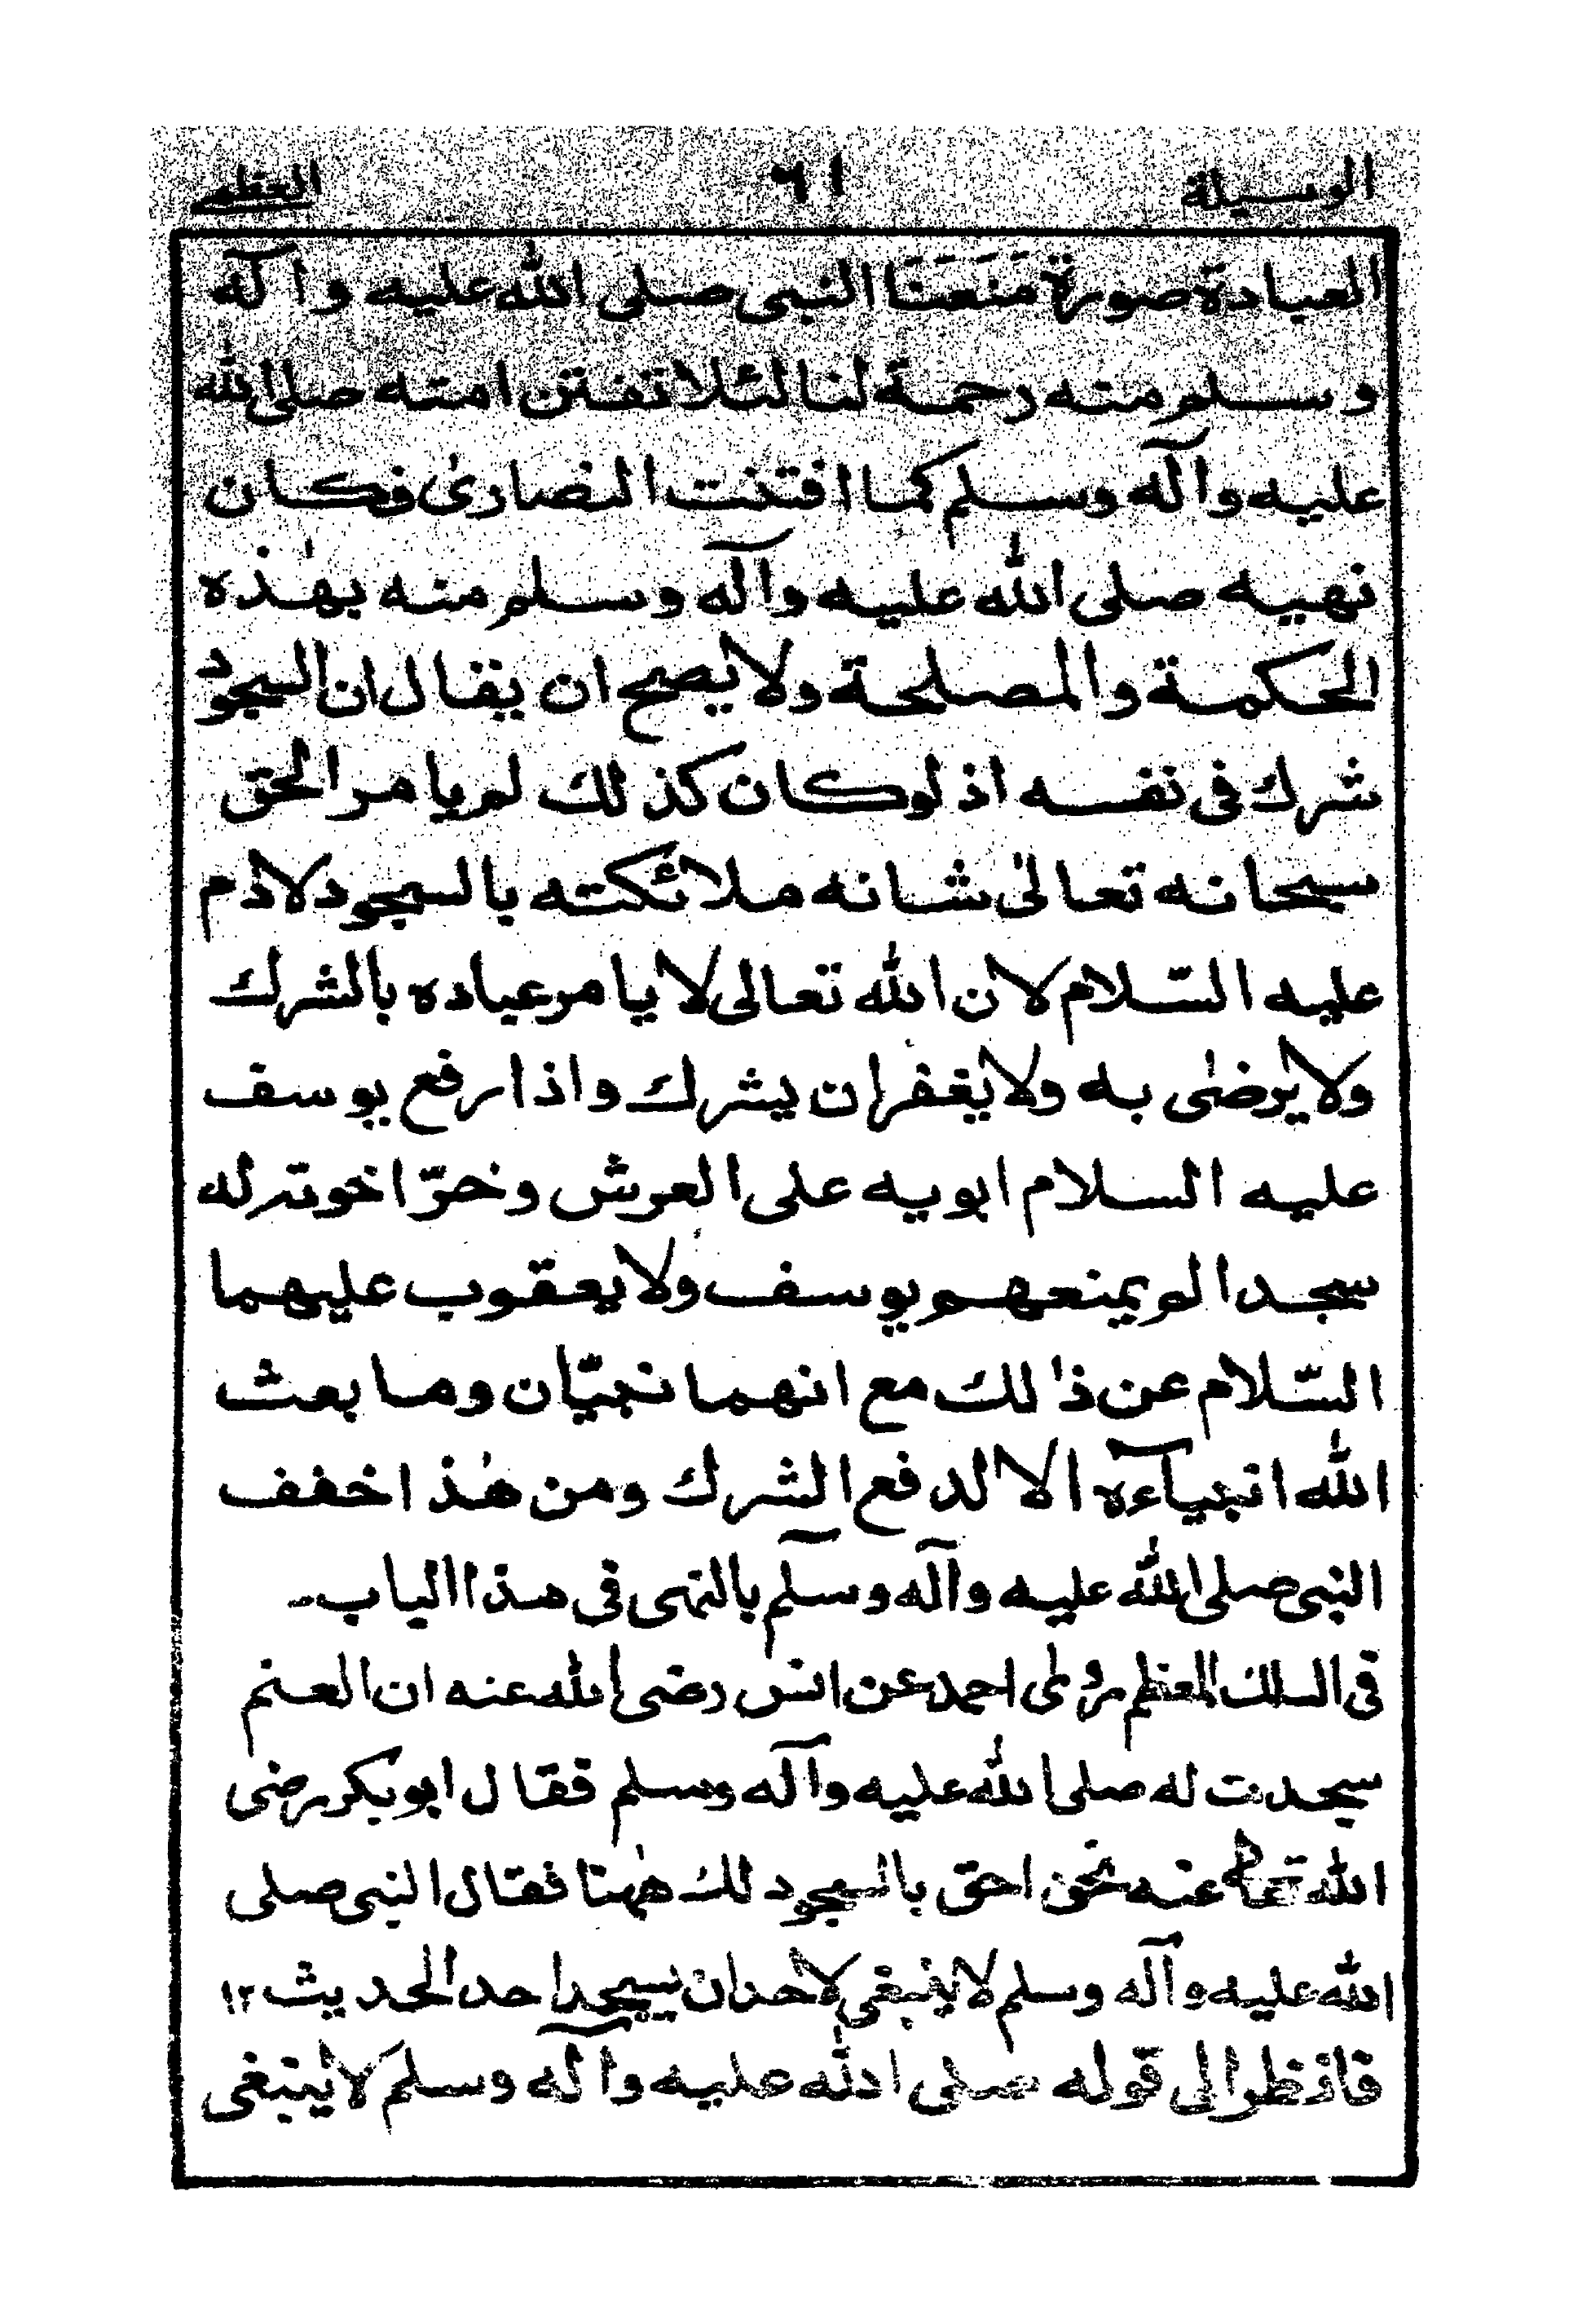 الوسيلة ٦١ العظمى
العبادة صورة مَنَعَنَا النبى صلى الله عليه وآله
وسلم منه رحمة لنا لئلا تفتتن امته صلى الله
عليه وآله وسلم كما افتتنت النصارىٰ فكان
نهيه صلى الله عليه وآله وسلم منه بهٰذه
الحكمة والمصلحة ولا يصح ان يقال ان السجود
شرك فى نفسه اذ لوكان كذلك لم يامر الحق
سبحانه تعالىٰ شانه ملائكته بالسجود لاٰدم
عليه السّلام لان الله تعالى لا يامر عباده بالشرك
ولا يرضىٰ به ولا يغفر ان يشرك واذا رفع يوسف
عليه السلام ابويه على العرش وخرّ اخوته له
سجدا لم يمنعهم يوسف ولا يعقوب عليهما
السّلام عن ذٰلك مع انهما نبيّان وما بعث
الله انبيآءه الا لدفع الشرك ومن هٰذا خفف
النبى صلى الله عليه وآله وسلم بالنهى فى هذا الباب۔
فى السلك المعظم روىٰ احمد عن انس رضى الله عنه ان الغنم
سجدت له صلى الله عليه وآله وسلم فقال ابوبكر رضى
الله تعالىٰ عنه نحن احق بالسجود لك هٰهنا فقال النبى صلى
الله عليه وآله وسلم لا ينبغى لاحد ان يسجد احد الحديث ١٢
فانظر الى قوله صلى الله عليه وآله وسلم لا ينبغى